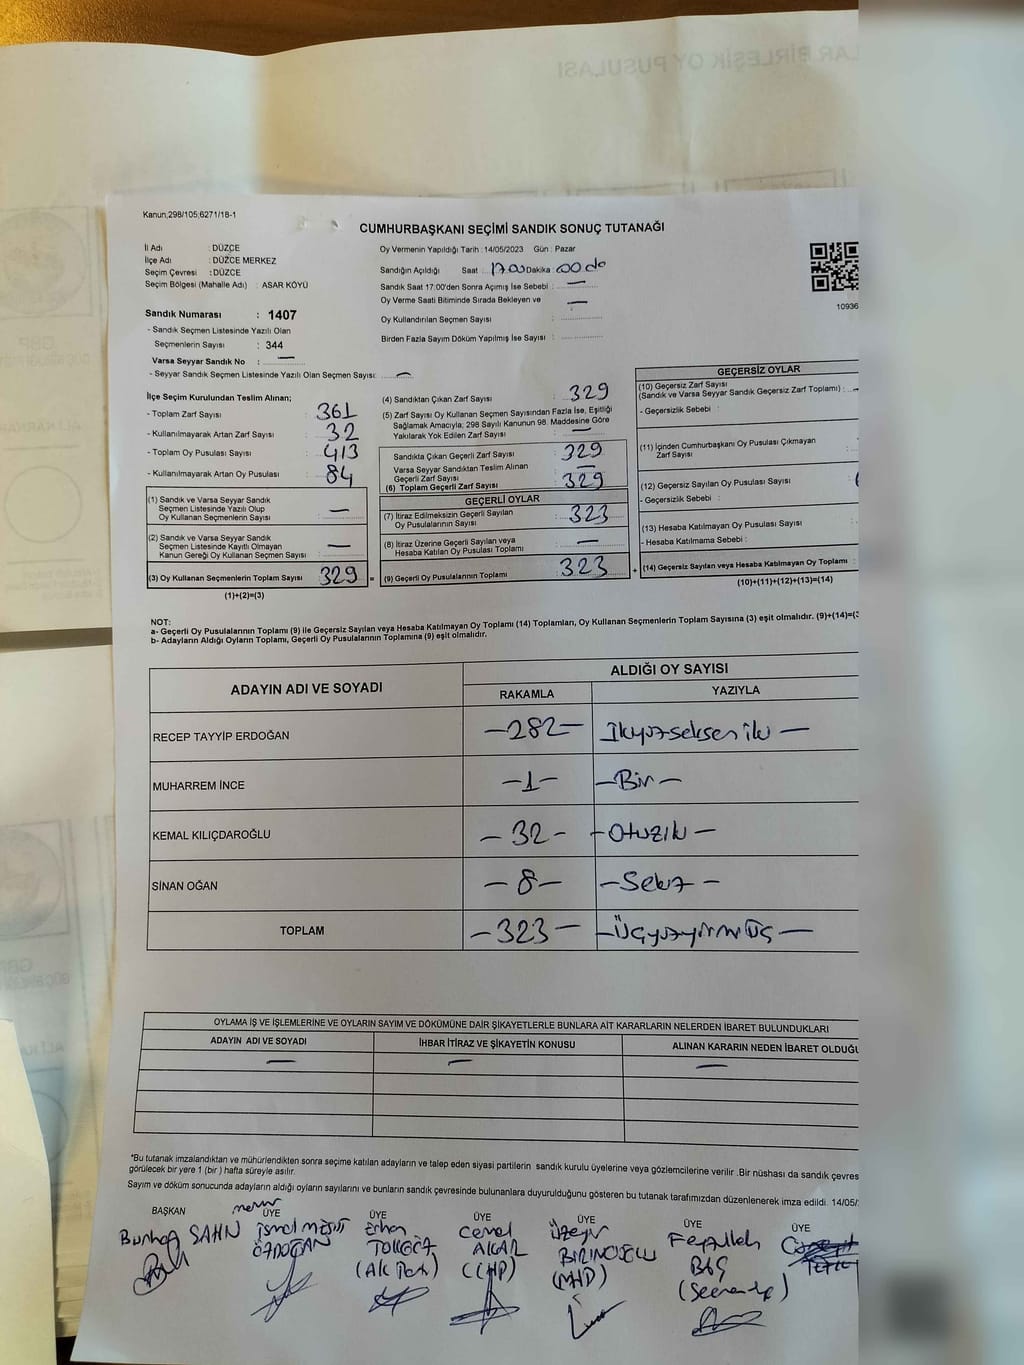 LAR BİRLEŞİK OY PUSULASI
Kanun,298/105,6271/18-1
CUMHURBAŞKANI SEÇİMİ SANDIK SONUÇ TUTANAĞI
İl Adı : DÜZCE
İlçe Adı : DÜZCE MERKEZ
Seçim Çevresi : DÜZCE
Seçim Bölgesi (Mahalle Adı) : ASAR KÖYÜ
Oy Vermenin Yapıldığı Tarih : 14/05/2023 Gün : Pazar
Sandığın Açıldığı Saat : 17.00 Dakika : 00 do
Sandık Saat 17:00'den Sonra Açımış İse Sebebi : —
Oy Verme Saati Bitiminde Sırada Bekleyen ve —
Oy Kullandırılan Seçmen Sayısı :
Birden Fazla Sayım Döküm Yapılmış İse Sayısı :
10936
Sandık Numarası : 1407
- Sandık Seçmen Listesinde Yazılı Olan
Seçmenlerin Sayısı : 344
Varsa Seyyar Sandık No : —
- Seyyar Sandık Seçmen Listesinde Yazılı Olan Seçmen Sayısı: —
İlçe Seçim Kurulundan Teslim Alınan;
- Toplam Zarf Sayısı : 361
- Kullanılmayarak Artan Zarf Sayısı : 32
- Toplam Oy Pusulası Sayısı : 413
- Kullanılmayarak Artan Oy Pusulası : 84
(1) Sandık ve Varsa Seyyar Sandık
Seçmen Listesinde Yazılı Olup
Oy Kullanan Seçmenlerin Sayısı : —
(2) Sandık ve Varsa Seyyar Sandık
Seçmen Listesinde Kayıtlı Olmayan
Kanun Gereği Oy Kullanan Seçmen Sayısı : —
(3) Oy Kullanan Seçmenlerin Toplam Sayısı : 329 =
(1)+(2)=(3)
(4) Sandıktan Çıkan Zarf Sayısı : 329
(5) Zarf Sayısı Oy Kullanan Seçmen Sayısından Fazla İse, Eşitliği
Sağlamak Amacıyla; 298 Sayılı Kanunun 98. Maddesine Göre
Yakılarak Yok Edilen Zarf Sayısı : —
Sandıkta Çıkan Geçerli Zarf Sayısı : 329
Varsa Seyyar Sandıktan Teslim Alınan
Geçerli Zarf Sayısı : —
(6) Toplam Geçerli Zarf Sayısı : 329
GEÇERLİ OYLAR
(7) İtiraz Edilmeksizin Geçerli Sayılan
Oy Pusulalarının Sayısı : 323
(8) İtiraz Üzerine Geçerli Sayılan veya
Hesaba Katılan Oy Pusulası Toplamı : —
(9) Geçerli Oy Pusulalarının Toplamı : 323 +
GEÇERSİZ OYLAR
(10) Geçersiz Zarf Sayısı
(Sandık ve Varsa Seyyar Sandık Geçersiz Zarf Toplamı) :
- Geçersizlik Sebebi :
(11) İçinden Cumhurbaşkanı Oy Pusulası Çıkmayan
Zarf Sayısı :
(12) Geçersiz Sayılan Oy Pusulası Sayısı :
- Geçersizlik Sebebi :
(13) Hesaba Katılmayan Oy Pusulası Sayısı :
- Hesaba Katılmama Sebebi :
(14) Geçersiz Sayılan veya Hesaba Katılmayan Oy Toplamı :
(10)+(11)+(12)+(13)=(14)
NOT:
a- Geçerli Oy Pusulalarının Toplamı (9) ile Geçersiz Sayılan veya Hesaba Katılmayan Oy Toplamı (14) Toplamları, Oy Kullanan Seçmenlerin Toplam Sayısına (3) eşit olmalıdır. (9)+(14)=(3
b- Adayların Aldığı Oyların Toplamı, Geçerli Oy Pusulalarının Toplamına (9) eşit olmalıdır.
ADAYIN ADI VE SOYADI
ALDIĞI OY SAYISI
RAKAMLA YAZIYLA
RECEP TAYYİP ERDOĞAN —282— İkiyüzseksen iki —
MUHARREM İNCE —1— —Bir—
KEMAL KILIÇDAROĞLU —32— —Otuziki—
SİNAN OĞAN —8— —Sekiz—
TOPLAM —323— —Üçyüzyirmi Üç—
OYLAMA İŞ VE İŞLEMLERİNE VE OYLARIN SAYIM VE DÖKÜMÜNE DAİR ŞİKAYETLERLE BUNLARA AİT KARARLARIN NELERDEN İBARET BULUNDUKLARI
ADAYIN ADI VE SOYADI İHBAR İTİRAZ VE ŞİKAYETİN KONUSU ALINAN KARARIN NEDEN İBARET OLDUĞU
— — —
*Bu tutanak imzalandıktan ve mühürlendikten sonra seçime katılan adayların ve talep eden siyasi partilerin sandık kurulu üyelerine veya gözlemcilerine verilir .Bir nüshası da sandık çevres
görülecek bir yere 1 (bir ) hafta süreyle asılır.
Sayım ve döküm sonucunda adayların aldığı oyların sayılarını ve bunların sandık çevresinde bulunanlara duyurulduğunu gösteren bu tutanak tarafımızdan düzenlenerek imza edildi. 14/05/
BAŞKAN memur ÜYE ÜYE ÜYE ÜYE ÜYE ÜYE
Burhan ŞAHİN
ÖZDOĞAN
Erhan
(AK Parti)
Cemal
AKAR
(CHP)
Üzeyir
BİRİNCİOĞLU
(MHP)
Feyzullah
BAŞ